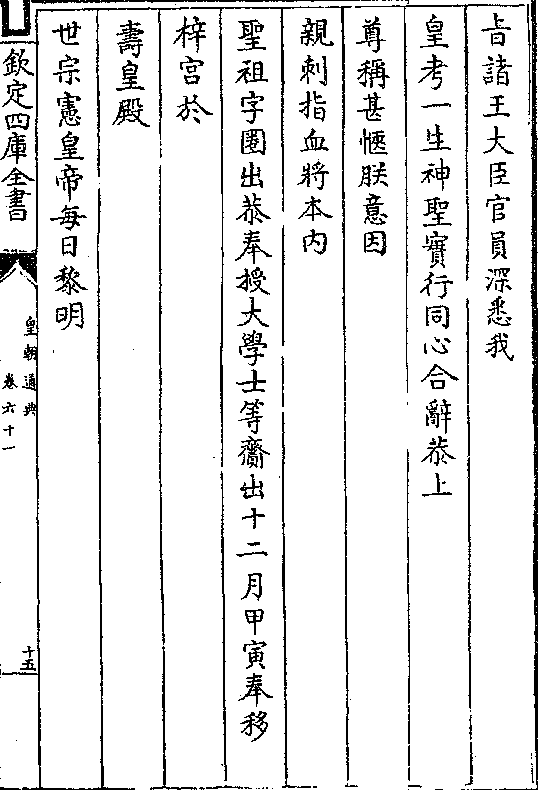 旨諸王大臣官員深悉我
皇考一生神聖實行同心合辭恭上
尊稱甚愜朕意因
親刺指血將本内
聖祖字圏出恭奉授大學士等齎出十二月甲寅奉移
梓宫於
壽皇殿
世宗憲皇帝每日黎明
欽定四庫全書
皇朝通典
卷六十一
十五